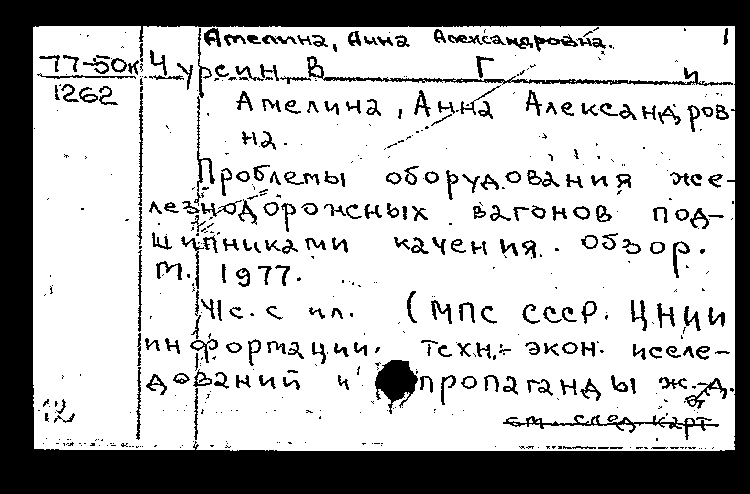 Амелина, Анна Александровна.
77-50к Чурсин, В Г и
1262
Амелина, Анна Александров-
на.
Проблемы оборудования же-
лезнодорожных вагонов под-
шипниками качения. Обзор.
М. 1977.
41с. с ил. (МПС СССР. ЦНИИ
информации, техн.-экон. иссле-
дований и пропаганды ж.-д.
12
см. след. карт